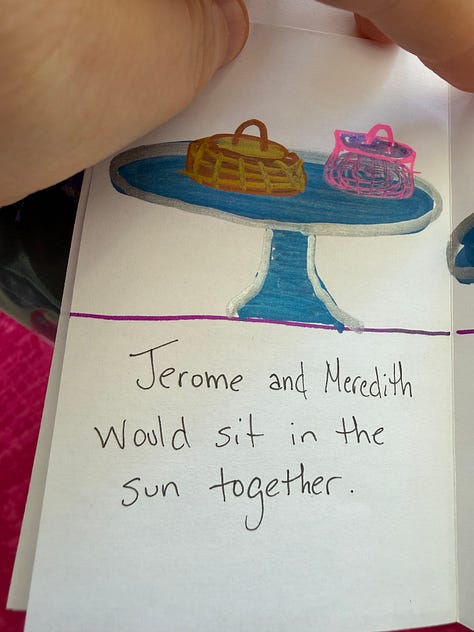 Jerome and Meredith
Would sit in the
sun together.